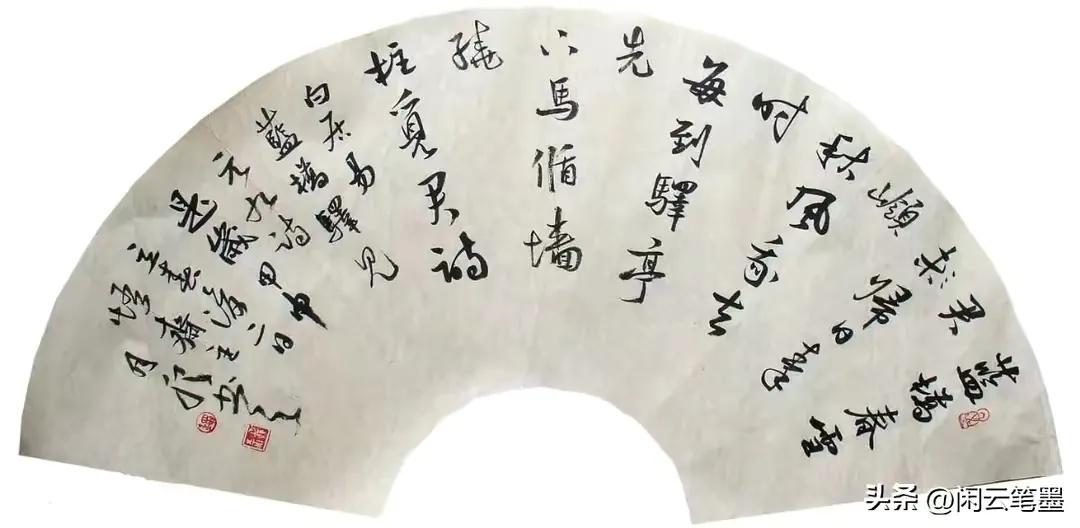 藍橋春雪
君歸日秦
嶺
秋風我去
時
每到驛亭
先
下馬循墙
繞
柱覓君詩
白居易
藍橋驛見
元九詩甲申
头条 @闲云笔墨